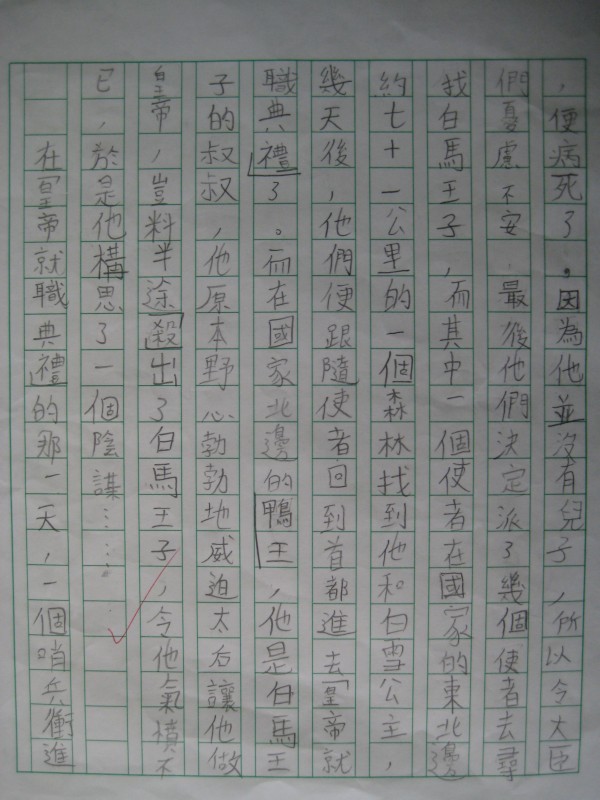 ，便病死了。因為他並沒有兒子，所以令大臣
們憂慮不安，最後他們決定派了幾個使者去尋
找白馬王子，而其中一個使者在國家的東北邊
約七十一公里的一個森林找到他和白雪公主，
幾天後，他們便跟隨使者回到首都進去「皇帝就
職典禮」了。而在國家北邊的鴨王，他是白馬王
子的叔叔，他原本野心勃勃地威迫太后讓他做
皇帝，豈料半途「殺」出了白馬王子，令他氣憤不
已，於是他構思了一個陰謀……。
在「皇帝就職典禮」的那一天，一個哨兵衝進